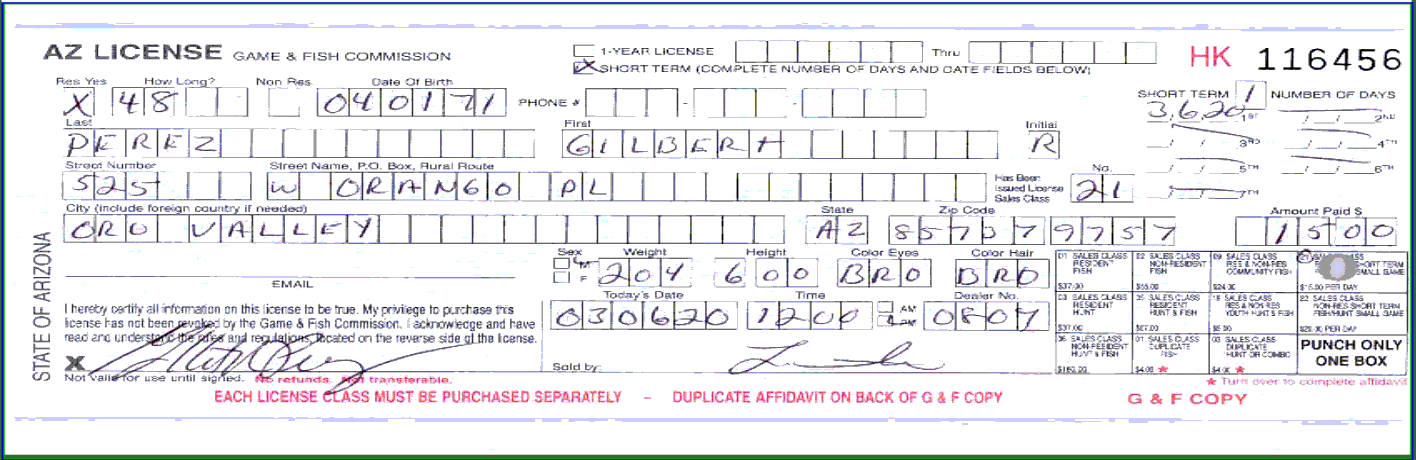 AZ LICENSE GAME & FISH COMMISSION
1-YEAR LICENSE Thru
X SHORT TERM (COMPLETE NUMBER OF DAYS AND DATE FIELDS BELOW)
HK 116456
Res Yes How Long? Non Res Date Of Birth
X 48 040171 PHONE #
SHORT TERM 1 NUMBER OF DAYS
3,6,20 1ST 2ND
3RD 4TH
5TH 6TH
7TH
Last First Initial
PEREZ GILBERH R
Street Number Street Name, P.O. Box, Rural Route
525 W ORANGO PL
Has Been Issued License Sales Class No. 21
City (include foreign country if needed) State Zip Code Amount Paid $
ORO VALLEY AZ 857379757 1500
Sex Weight Height Color Eyes Color Hair
M F 204 600 BRO BRO
EMAIL
Today's Date Time Dealer No.
030620 1200 AM PM 0807
STATE OF ARIZONA
I hereby certify all information on this license to be true. My privilege to purchase this
license has not been revoked by the Game & Fish Commission. I acknowledge and have
read and understand the rules and regulations, located on the reverse side of the license.
X
Sold by:
Not valid for use until signed. No refunds. Not transferable.
01 SALES CLASS RESIDENT FISH $37.00
02 SALES CLASS NON-RESIDENT FISH $55.00
09 SALES CLASS RES & NON-RES COMMUNITY FISH $24.00
SHORT TERM SMALL GAME $15.00 PER DAY
03 SALES CLASS RESIDENT HUNT $37.00
RESIDENT HUNT & FISH $57.00
SALES CLASS RES & NON RES YOUTH HUNT & FISH $5.00
22 SALES CLASS NON-RES SHORT TERM FISH/HUNT SMALL GAME $20.00 PER DAY
SALES CLASS NON-RESIDENT HUNT & FISH $160.00
SALES CLASS DUPLICATE FISH $4.00 ★
SALES CLASS DUPLICATE HUNT OR COMBO $4.00 ★
PUNCH ONLY
ONE BOX
★ Turn over to complete affidavit
EACH LICENSE CLASS MUST BE PURCHASED SEPARATELY – DUPLICATE AFFIDAVIT ON BACK OF G & F COPY G & F COPY